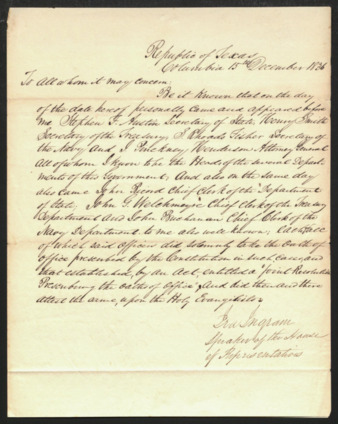 Republic of Texas
Columbia 15th December 1836
To All whom it may concern:
Be it Known that on the day
of the date hereof personally came and appeared before
me Stephen F. Austin Secretary of State, Henry Smith
Secretary of the Treasury, S Rhoads Fisher Secretary of
the Navy and J Pinckney Henderson Attorney General
All of whom I know to be the Heads of the several Depart-
ments of this Government; And also on the same day
also came John Chief Clerk of the Department
of State, John G Welschmeyer Chief Clerk of the Treasury
Department and John Buchanan Chief Clerk of the
Navy Department to me also well known; Each
of which said officers did solemnly take the Oath of
office prescribed by the Constitution in such cases and
that established, by an Act, entitled a "Joint Resolution
Prescribing the oaths of office" and did then and there
attest the same, upon the Holy Evangelists
Ira Ingram
Speaker of the House
of Representatives